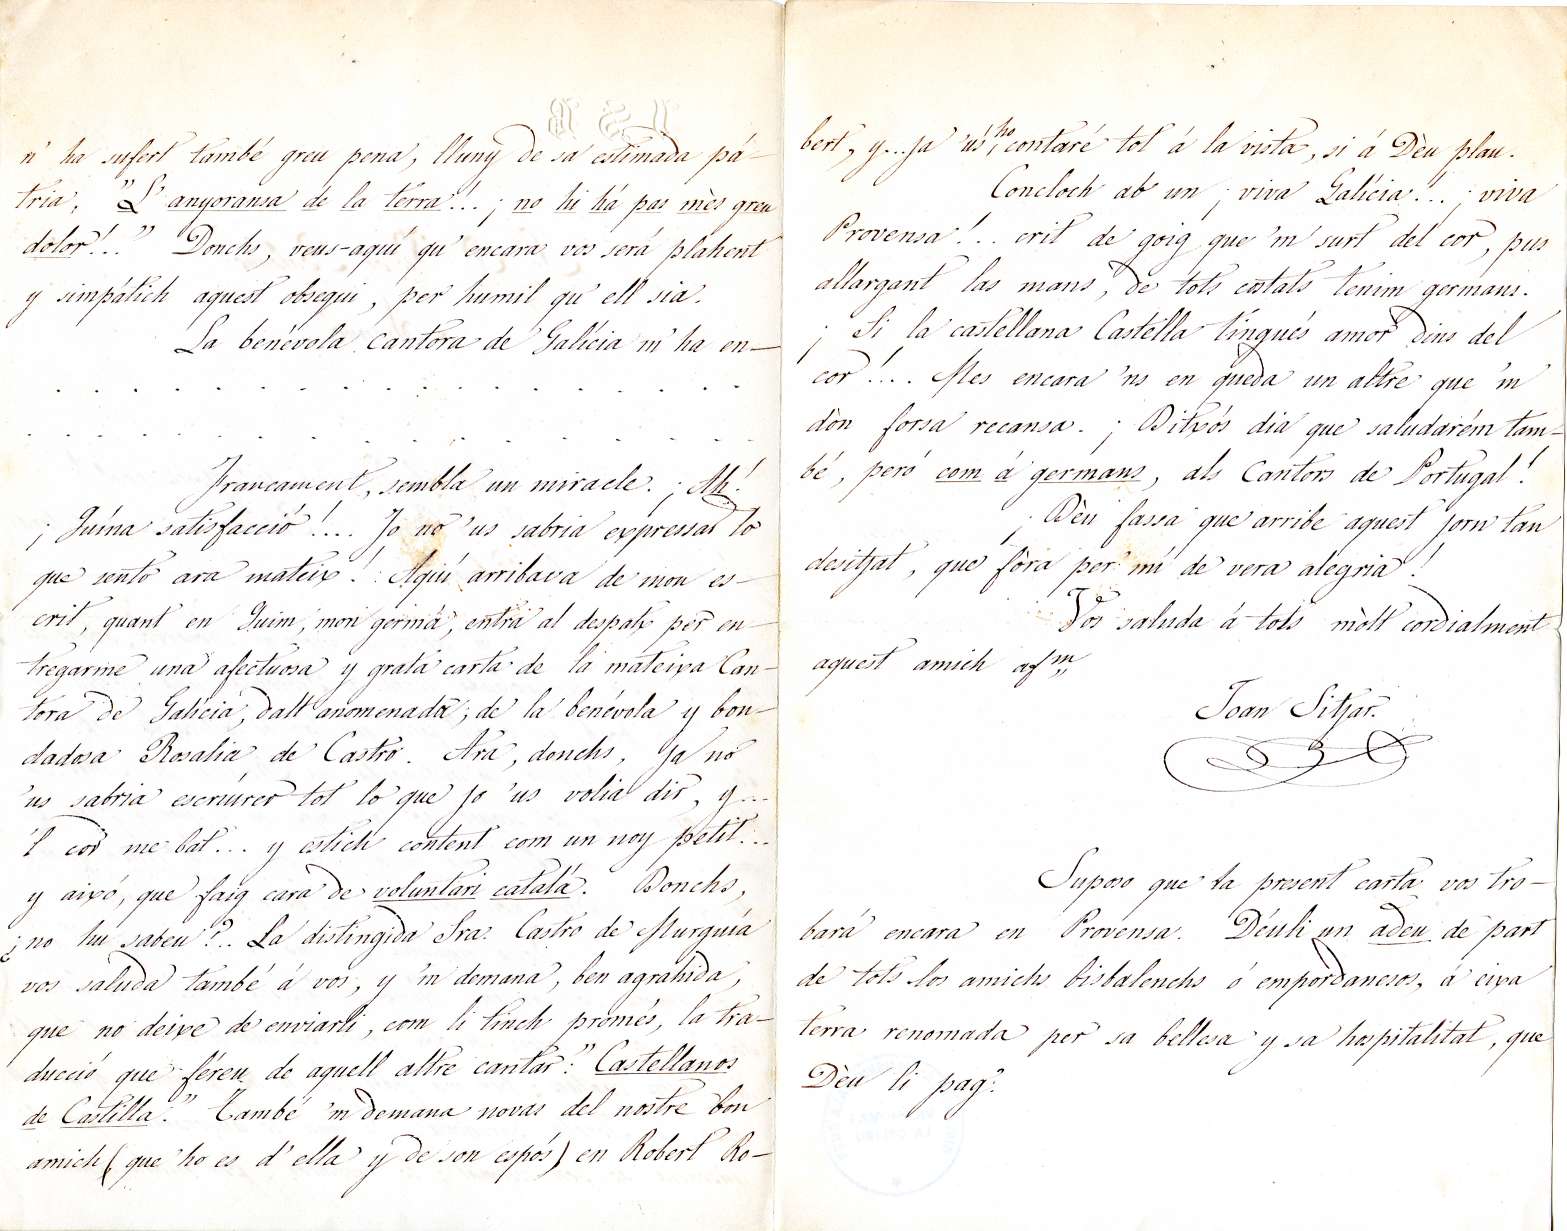 n' ha sufert també greu pena, lluny de sa estimada pá-
tria, "L' anyoransa de la terra!.. ¡ no hi há pas mès greu
dolor!.." Donchs, veus-aquí qu' encara vos será plahent
y simpátich aquest obsequi, per humil qu' ell sia.
La benévola cantora de Galícia m' ha en-
. . . . . . . . . . . . . . . . . .
. . . . . . . . . . . . . . . . . . .
Francament, sembla un miracle. ¡ Ah!
¡ Quína satisfacció!.... Jo no 'us sabria expressar lo
que sento ara mateix! Aquí arribava de mon es-
crit, quant en Quim, mon germá, entrá al despatx per en-
tregarme una afectuosa y grata carta de la mateixa Can-
tora de Galícia, dalt anomenada; de la benévola y bon-
dadosa Rosalía de Castro. Ara, donchs, ja no
'us sabria escriúrer tot lo que jo 'us volia dir, y...
'l cor me bat... y estich content com un noy petit...
y aixó, que faig cara de voluntari catalá. Donchs,
¿no hu sabeu?.. La distingida Sra. Castro de Murguía
vos saluda també á vos, y 'm demana, ben agrahida,
que no deixe de enviarli, com li tinch promés, la tra-
ducció que féreu de aquell altre cantar: "Castellanos
de Castilla." També 'm demana novas del nostre bon
amich (que ho es d' ella y de son espós) en Robert Ro-
bert, y... ja 'us ho contaré tot á la vista, si á Dèu plau.
Concloch ab un ¡ viva Galícia!... ¡ viva
Provensa!... crit de goig que 'm surt del cor, pus
allargant las mans, de tots costats tenim germans.
¡ Si la castellana Castella tingués amor dins del
cor!.... Mes encara 'ns en queda un altre que 'm
dòn forsa recansa. ¡ Ditxós dia que saludarém tam-
bé, peró com á germans, als Cantors de Portugal!
¡ Dèu fassa que arribe aquest jorn tan
desitjat, que fòra per mí de vera alegria!
Vos saluda á tots mòlt cordialment
aquest amich afm.
Joan Sitjar.
Suposo que la present carta vos tro-
bará encara en Provensa. Déuli un adeu de part
de tots los amichs bisbalenchs ó empordanesos, á eixa
terra renomada per sa bellesa y sa hospitalitat, que
Dèu li pag?